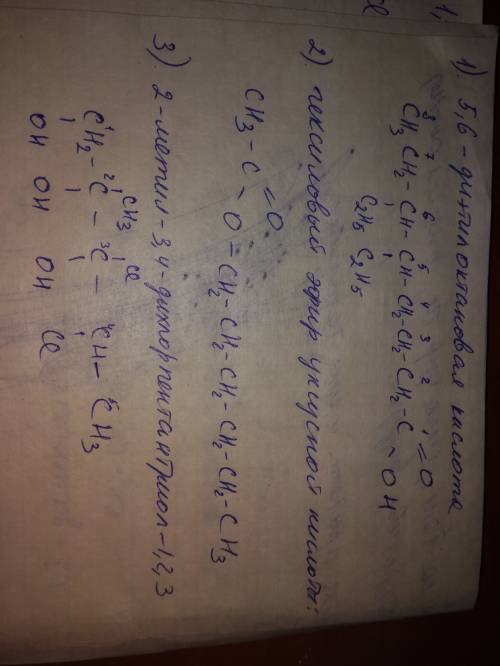 1). 5,6-диэтилоктановая кислота
8 7 6 5 4 3 2 1 =O
CH3CH2-CH-CH-CH2-CH2-CH2-C
C2H5 C2H5 - OH
2) гексиловый эфир уксусной кислоты:
=O
CH3-C
- O-CH2-CH2-CH2-CH2-CH2-CH3
3) 2-метил-3,4-дихлорпентантриол-1,2,3
CH3 Cl
1 2 3 4 5
CH2-C-C-CH-CH3
OH OH OH Cl